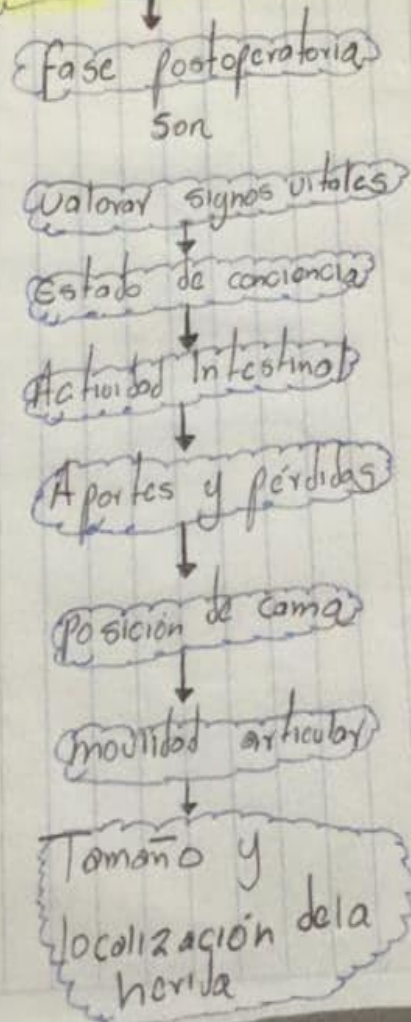 Fase postoperatoria
son
Valorar signos vitales
Estado de conciencia
Actividad Intestinal
Aportes y pérdidas
Posición de cama
movilidad articular
Tamaño y
localización dela
herida